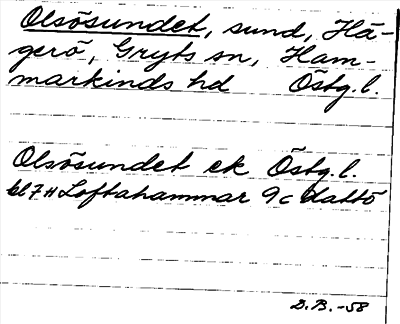 Olsösundet, sund, Hä-
gerö, Gryts sn, Ham-
markinds hd Östg.l.
Olsösundet ek Östg.l.
bl 7H Loftahammar 9c
D.B.-58